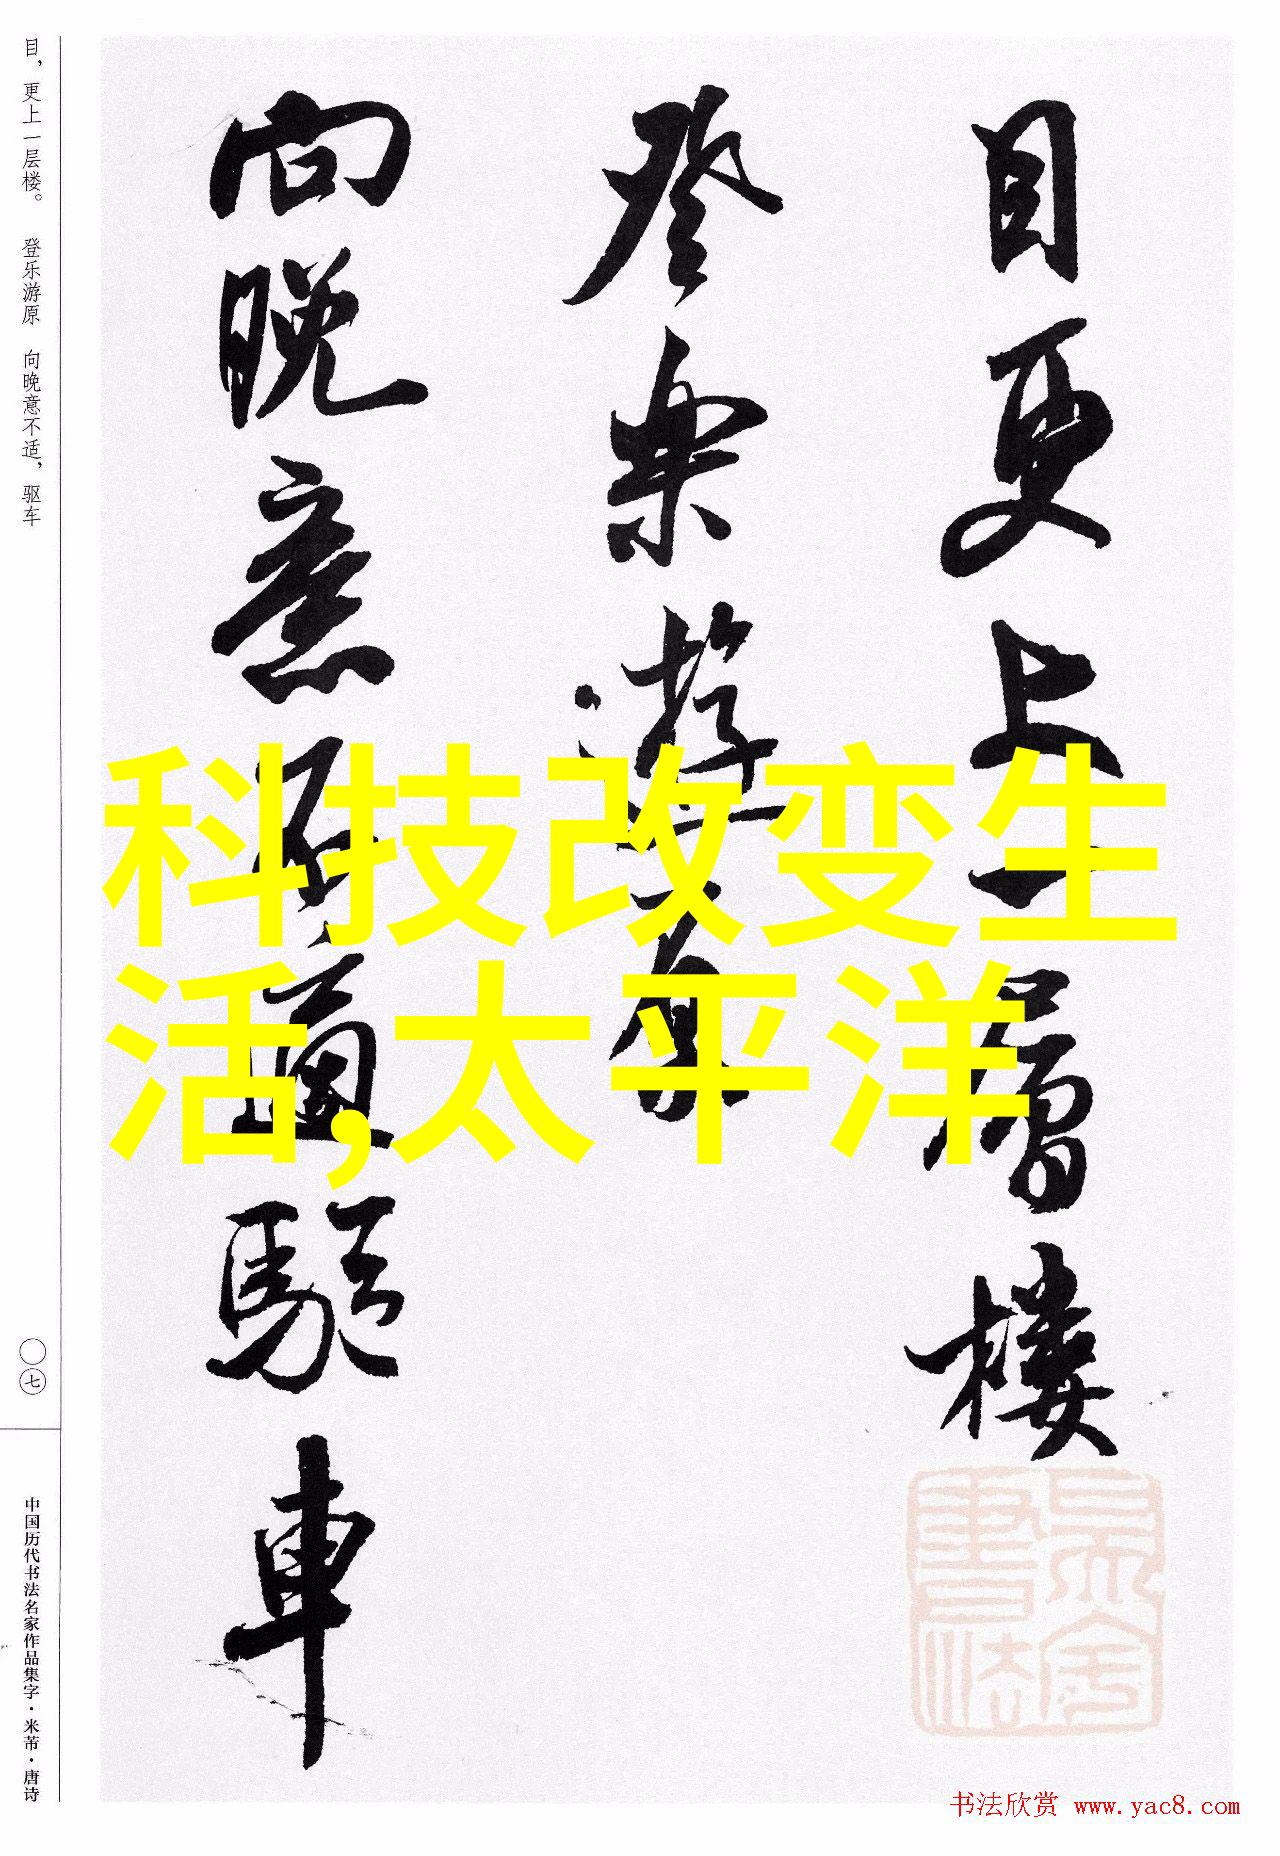 目更上一层楼
登乐游原
向晚意不适驱车
科技改变生
活,太平洋
目，更上一层楼。　登乐游原　向晚意不适，驱车
〇七
中国历代书法名家作品集字·米芾·唐诗
书法欣赏 www.yac8.com